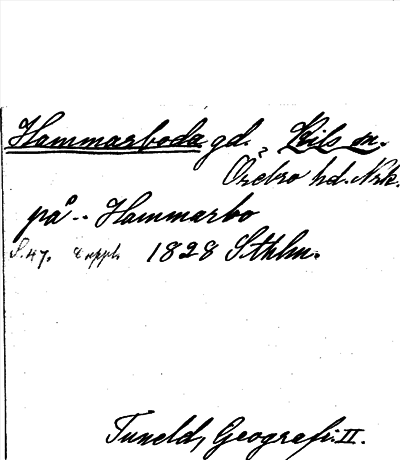 Hammarboda gd., Kils sn.
Örebro hd. Nrk.
på .. Hammarbo
S. 47. 8 uppl. 1828 Sthlm.
Tuneld, Geografi. II.